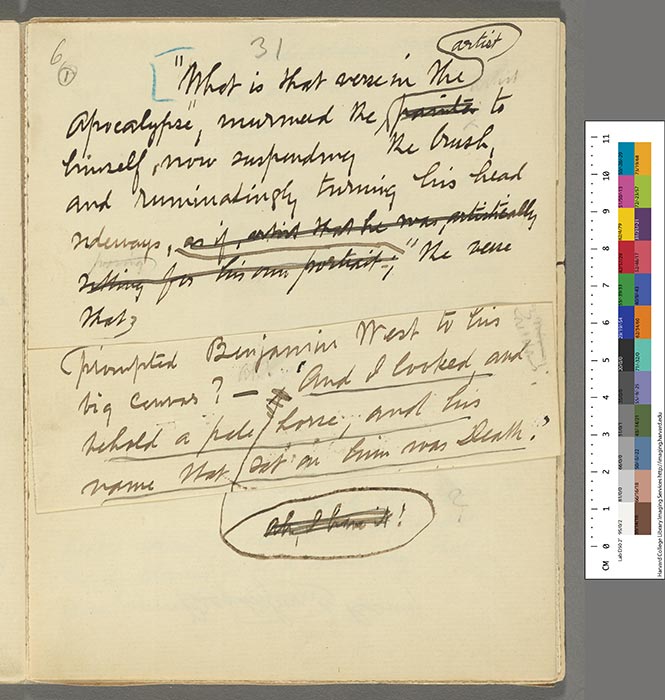 6 1 31
artist
"What is that verse in the
Apocalypse", murmured the painter to
himself, now suspending the brush,
and ruminatingly turning his head
sideways, as if, artist that he was, artistically
sitting for his own portrait; "the verse
that
prompted Benjamin West to his
big canvas? — 'And I looked and
behold a pale horse, and his
name that sat on him was Death.'
Ah, I have it!
CM 0 1 2 3 4 5 6 7 8 9 10 11
Harvard College Library Imaging Services http://imaging.harvard.edu